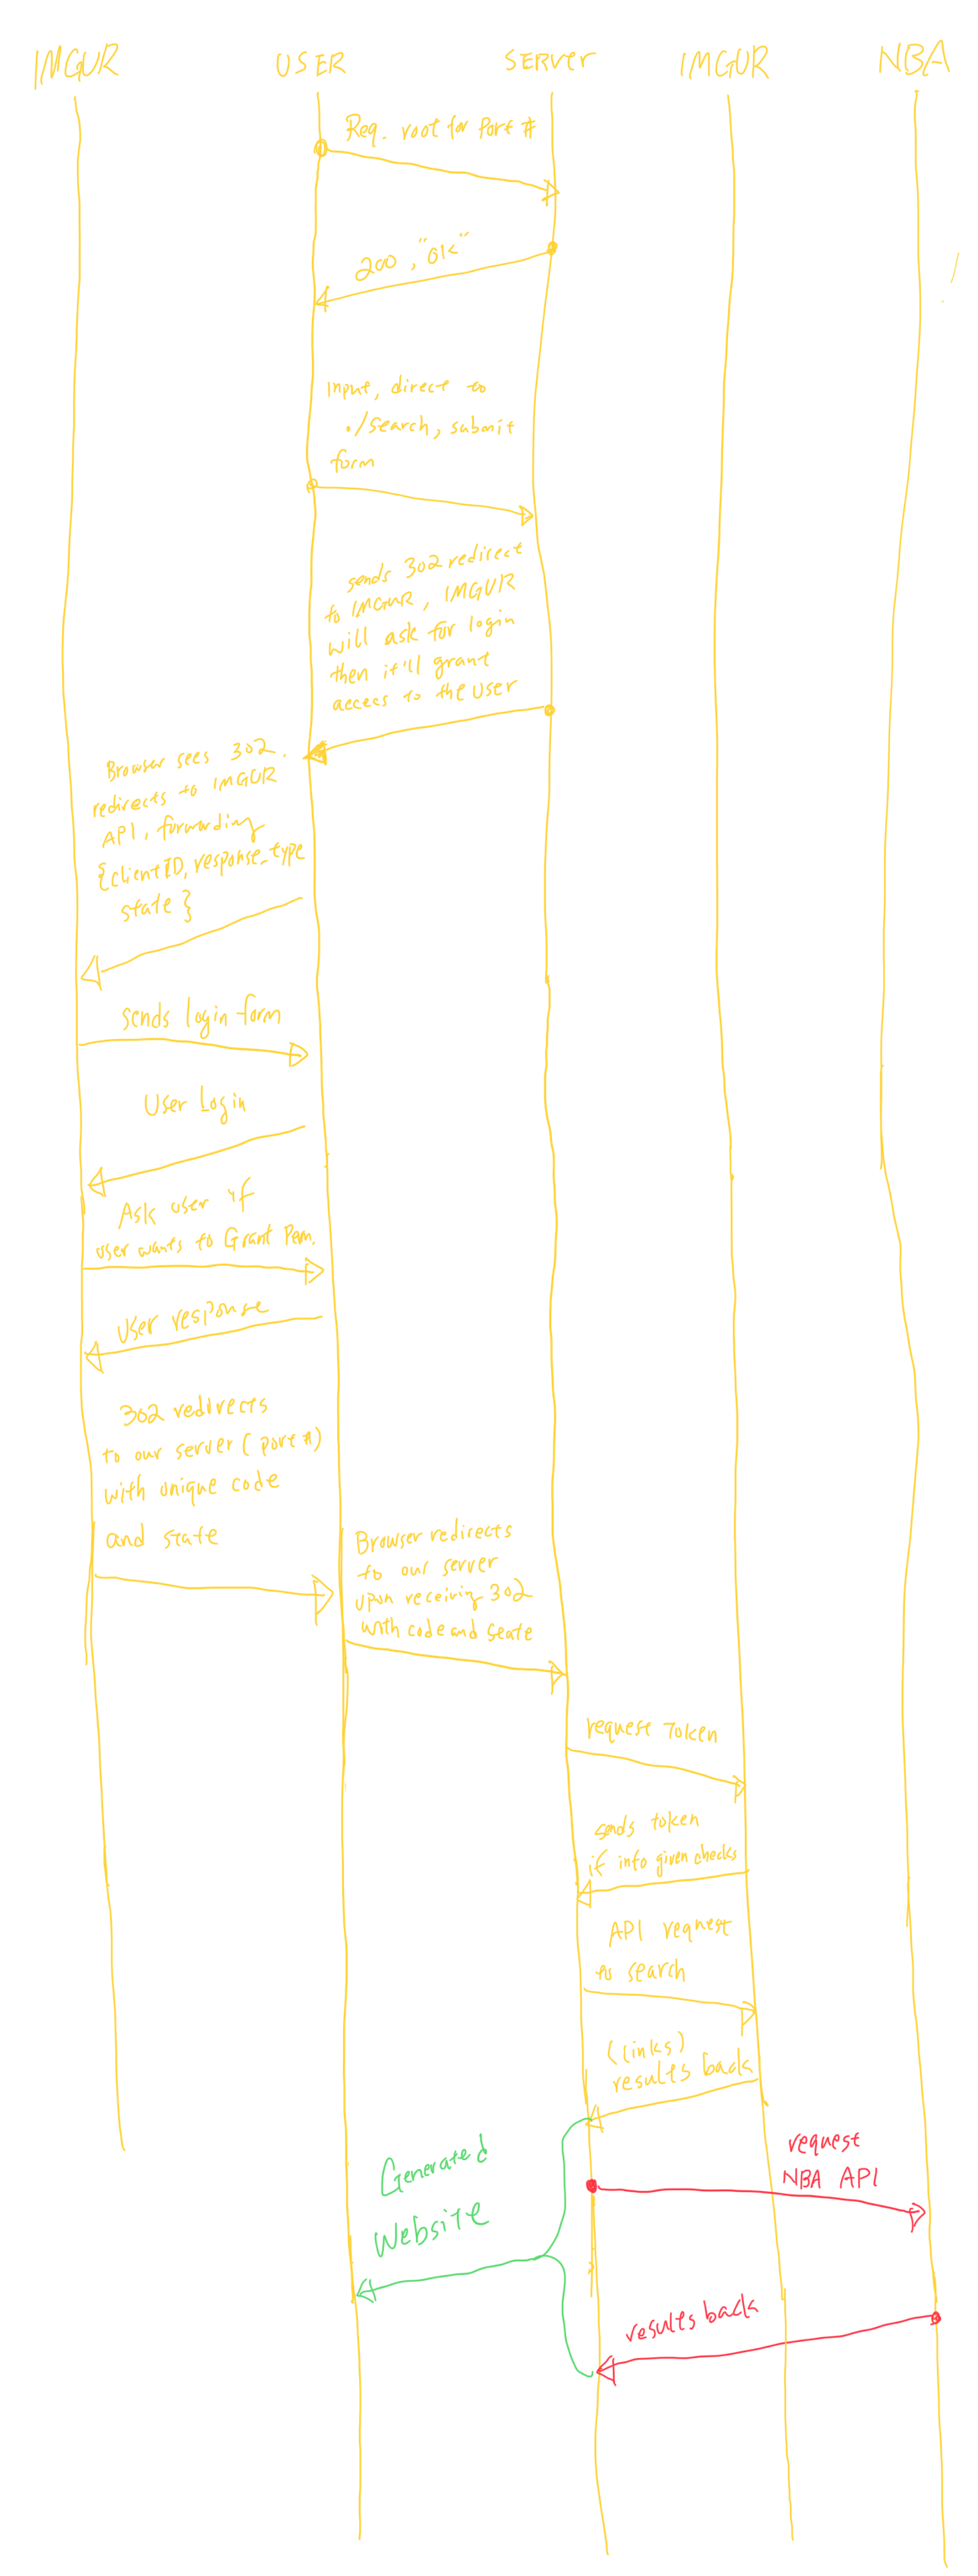 IMGUR
USER
SERVER
IMGUR
NBA
Req. root for Port #
200, "OK"
Input, direct to
./search, submit
form
sends 302 redirect
to IMGUR, IMGUR
will ask for login
then it'll grant
access to the user
Browser sees 302.
redirects to IMGUR
API, forwarding
{clientID, response_type
state}
sends login form
User Login
Ask user if
user wants to Grant Perm.
User response
302 redirects
to our server (port #)
with unique code
and state
Browser redirects
to our server
upon receiving 302
with code and state
request Token
sends token
if info given checks
API request
to search
(links)
results back
request
NBA API
Generated
Website
results back